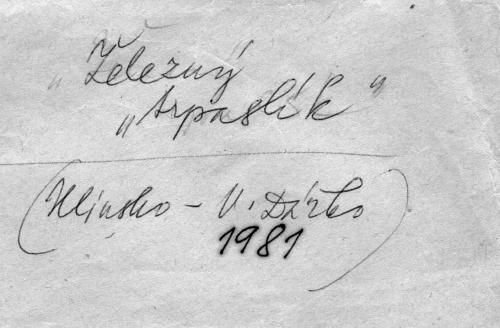 „Železný
„trpaslík"
(Hlinsko - V. Dářko)
1981